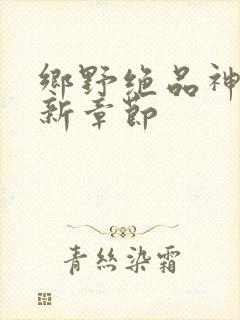 鄉野絕品神
新章節
青絲染霜